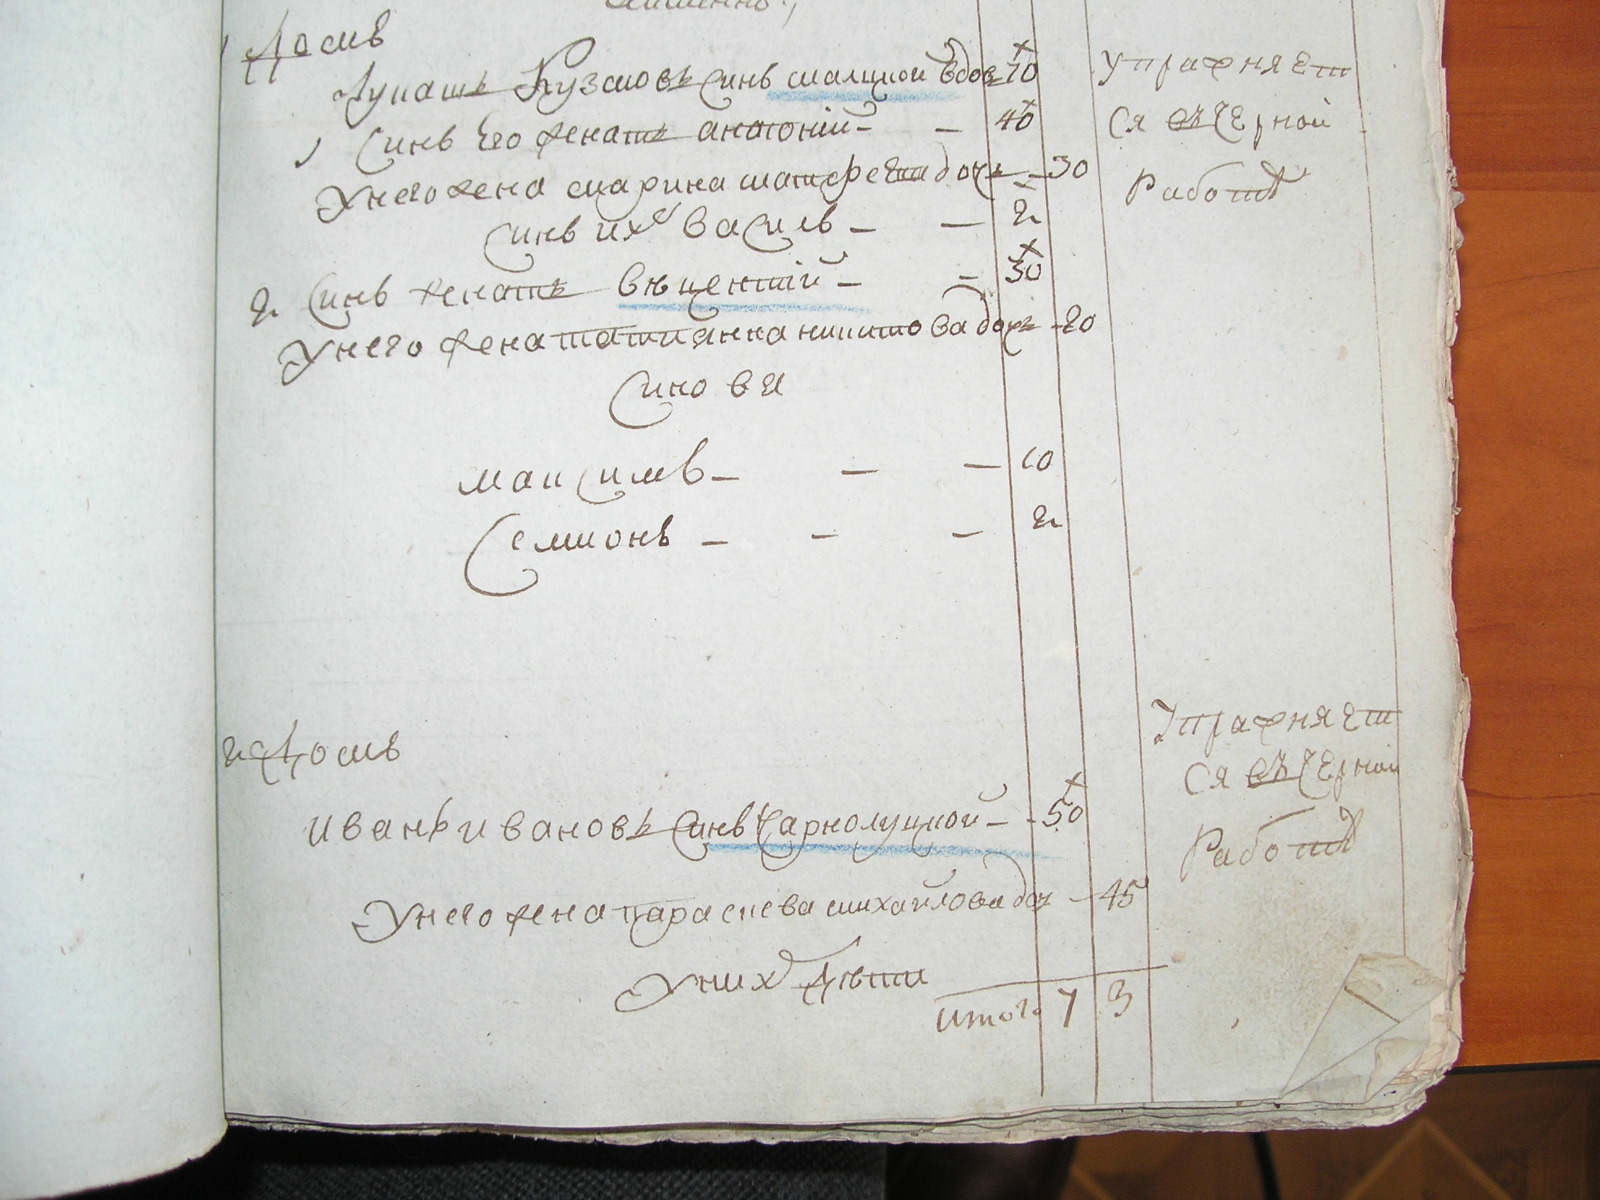 Домъ
Лукашъ Кузмовъ Синъ малицкой вдов 70
Упражняет
1 Синъ его женатъ анатоній — — 40
Ся въ Черной
Унего жена марина матфеева дочъ — 30
Работѣ
Синъ ихъ Василъ — — 2
2 Синъ женатъ викентій — — 30
Унего жена татианна никитова дочъ — 20
Синови
максимъ — — — 10
Семионъ — — — 2
2 Домъ
Упражняет
Ся въ Черной
Иванъ ивановъ Синъ Чарнолуцкой — 50
Работѣ
Унего жена параскева михайлова доч — 45
Уних дѣти
итого 7 3